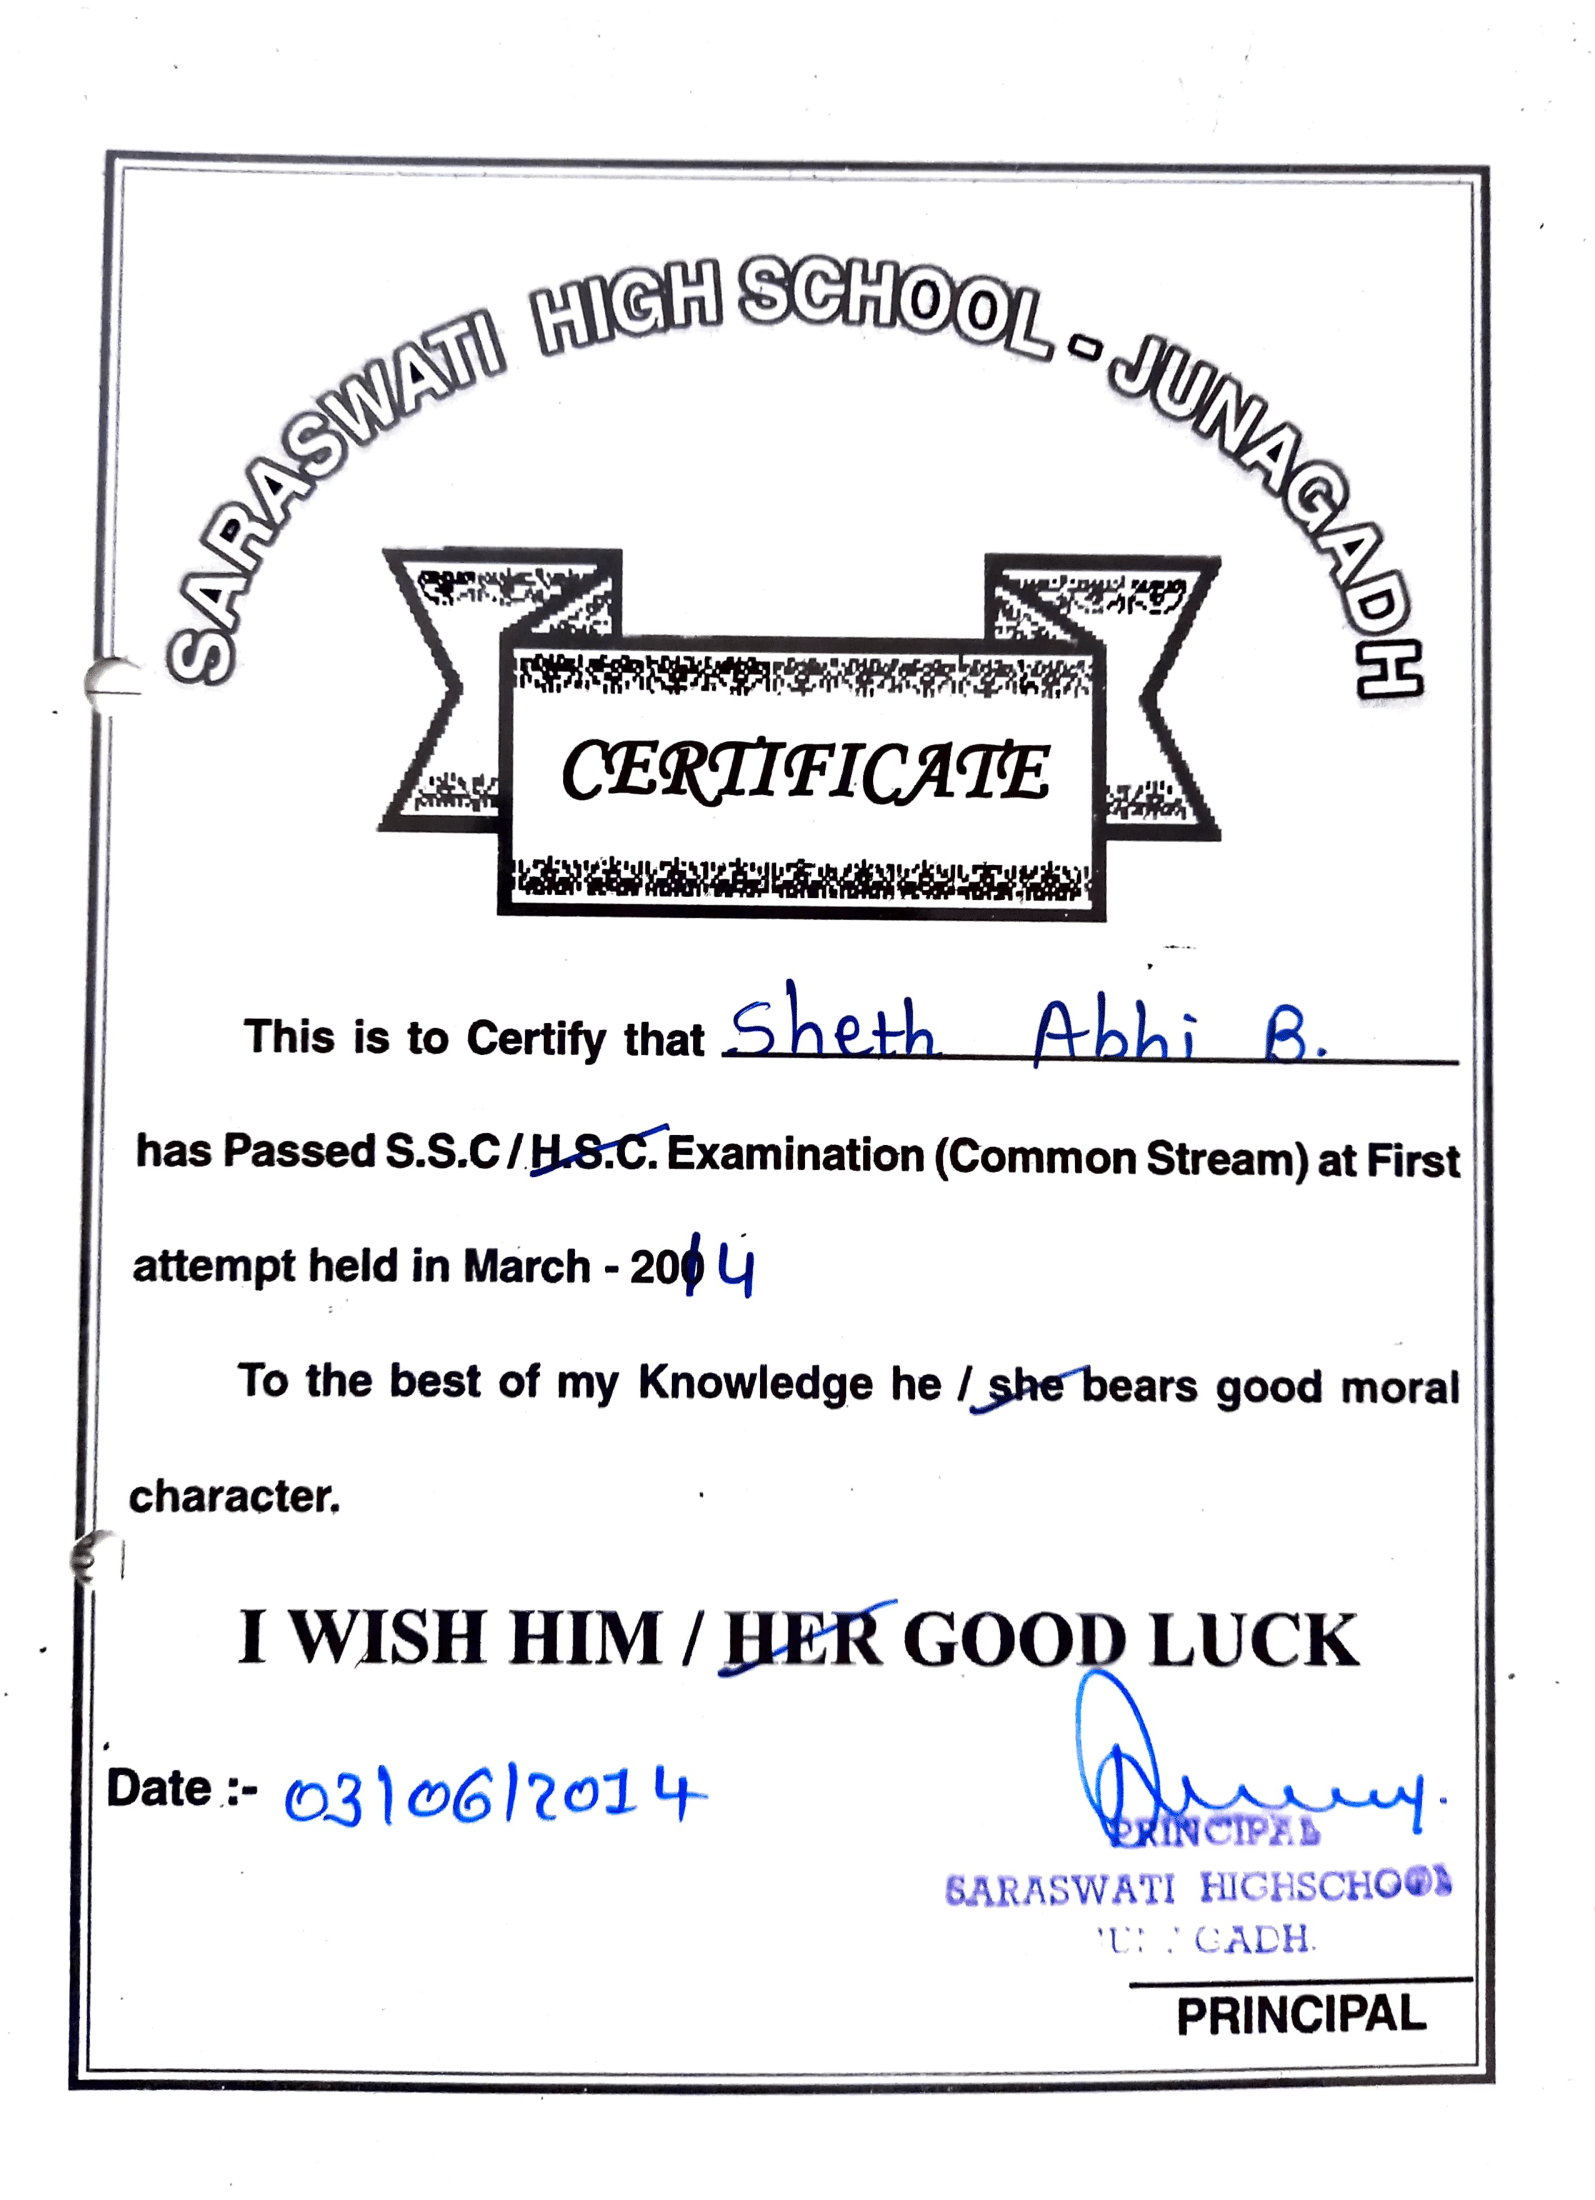 SARASWATI HIGH SCHOOL - JUNAGADH
CERTIFICATE
This is to Certify that Sheth Abhi B.
has Passed S.S.C / H.S.C. Examination (Common Stream) at First
attempt held in March - 2014
To the best of my Knowledge he / she bears good moral
character.
I WISH HIM / HER GOOD LUCK
Date :- 03/06/2014
PRINCIPAL
SARASWATI HIGHSCHOOL
PRINCIPAL